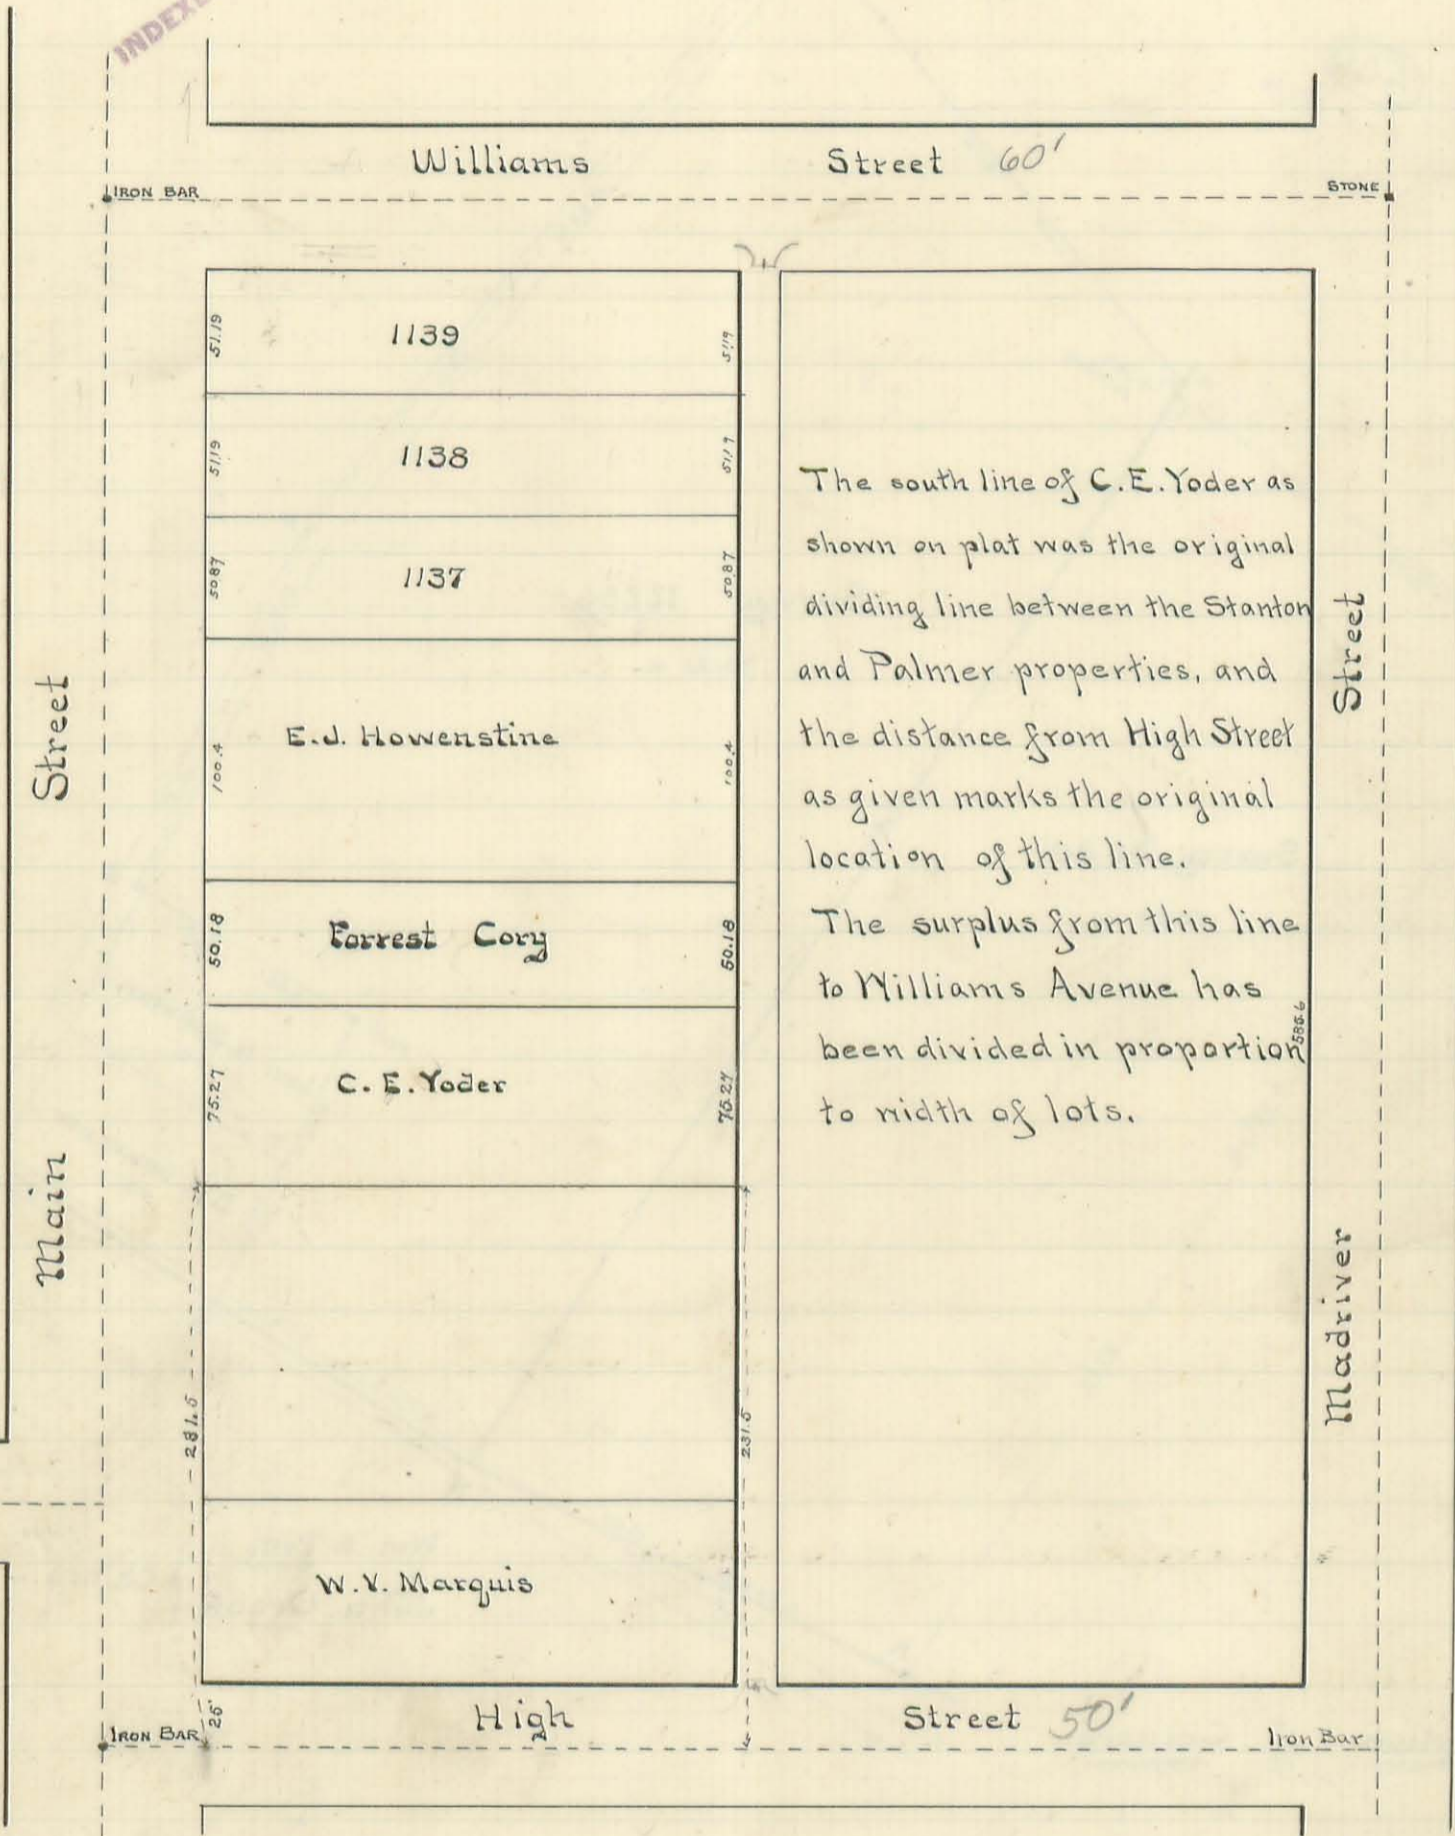 Williams Street 60'
IRON BAR
STONE
51.19 1139 51.19
51.19 1138 51.19
50.87 1137 50.87
100.4 E.J. Howenstine 100.4
50.18 Forrest Cory 50.18
75.27 C.E. Yoder 75.27
231.5
W.V. Marquis
Main Street
The south line of C.E. Yoder as
shown on plat was the original
dividing line between the Stanton
and Palmer properties, and
the distance from High Street
as given marks the original
location of this line.
The surplus from this line
to Williams Avenue has
been divided in proportion
to width of lots.
Madriver Street
25'
High Street 50'
IRON BAR
Iron Bar